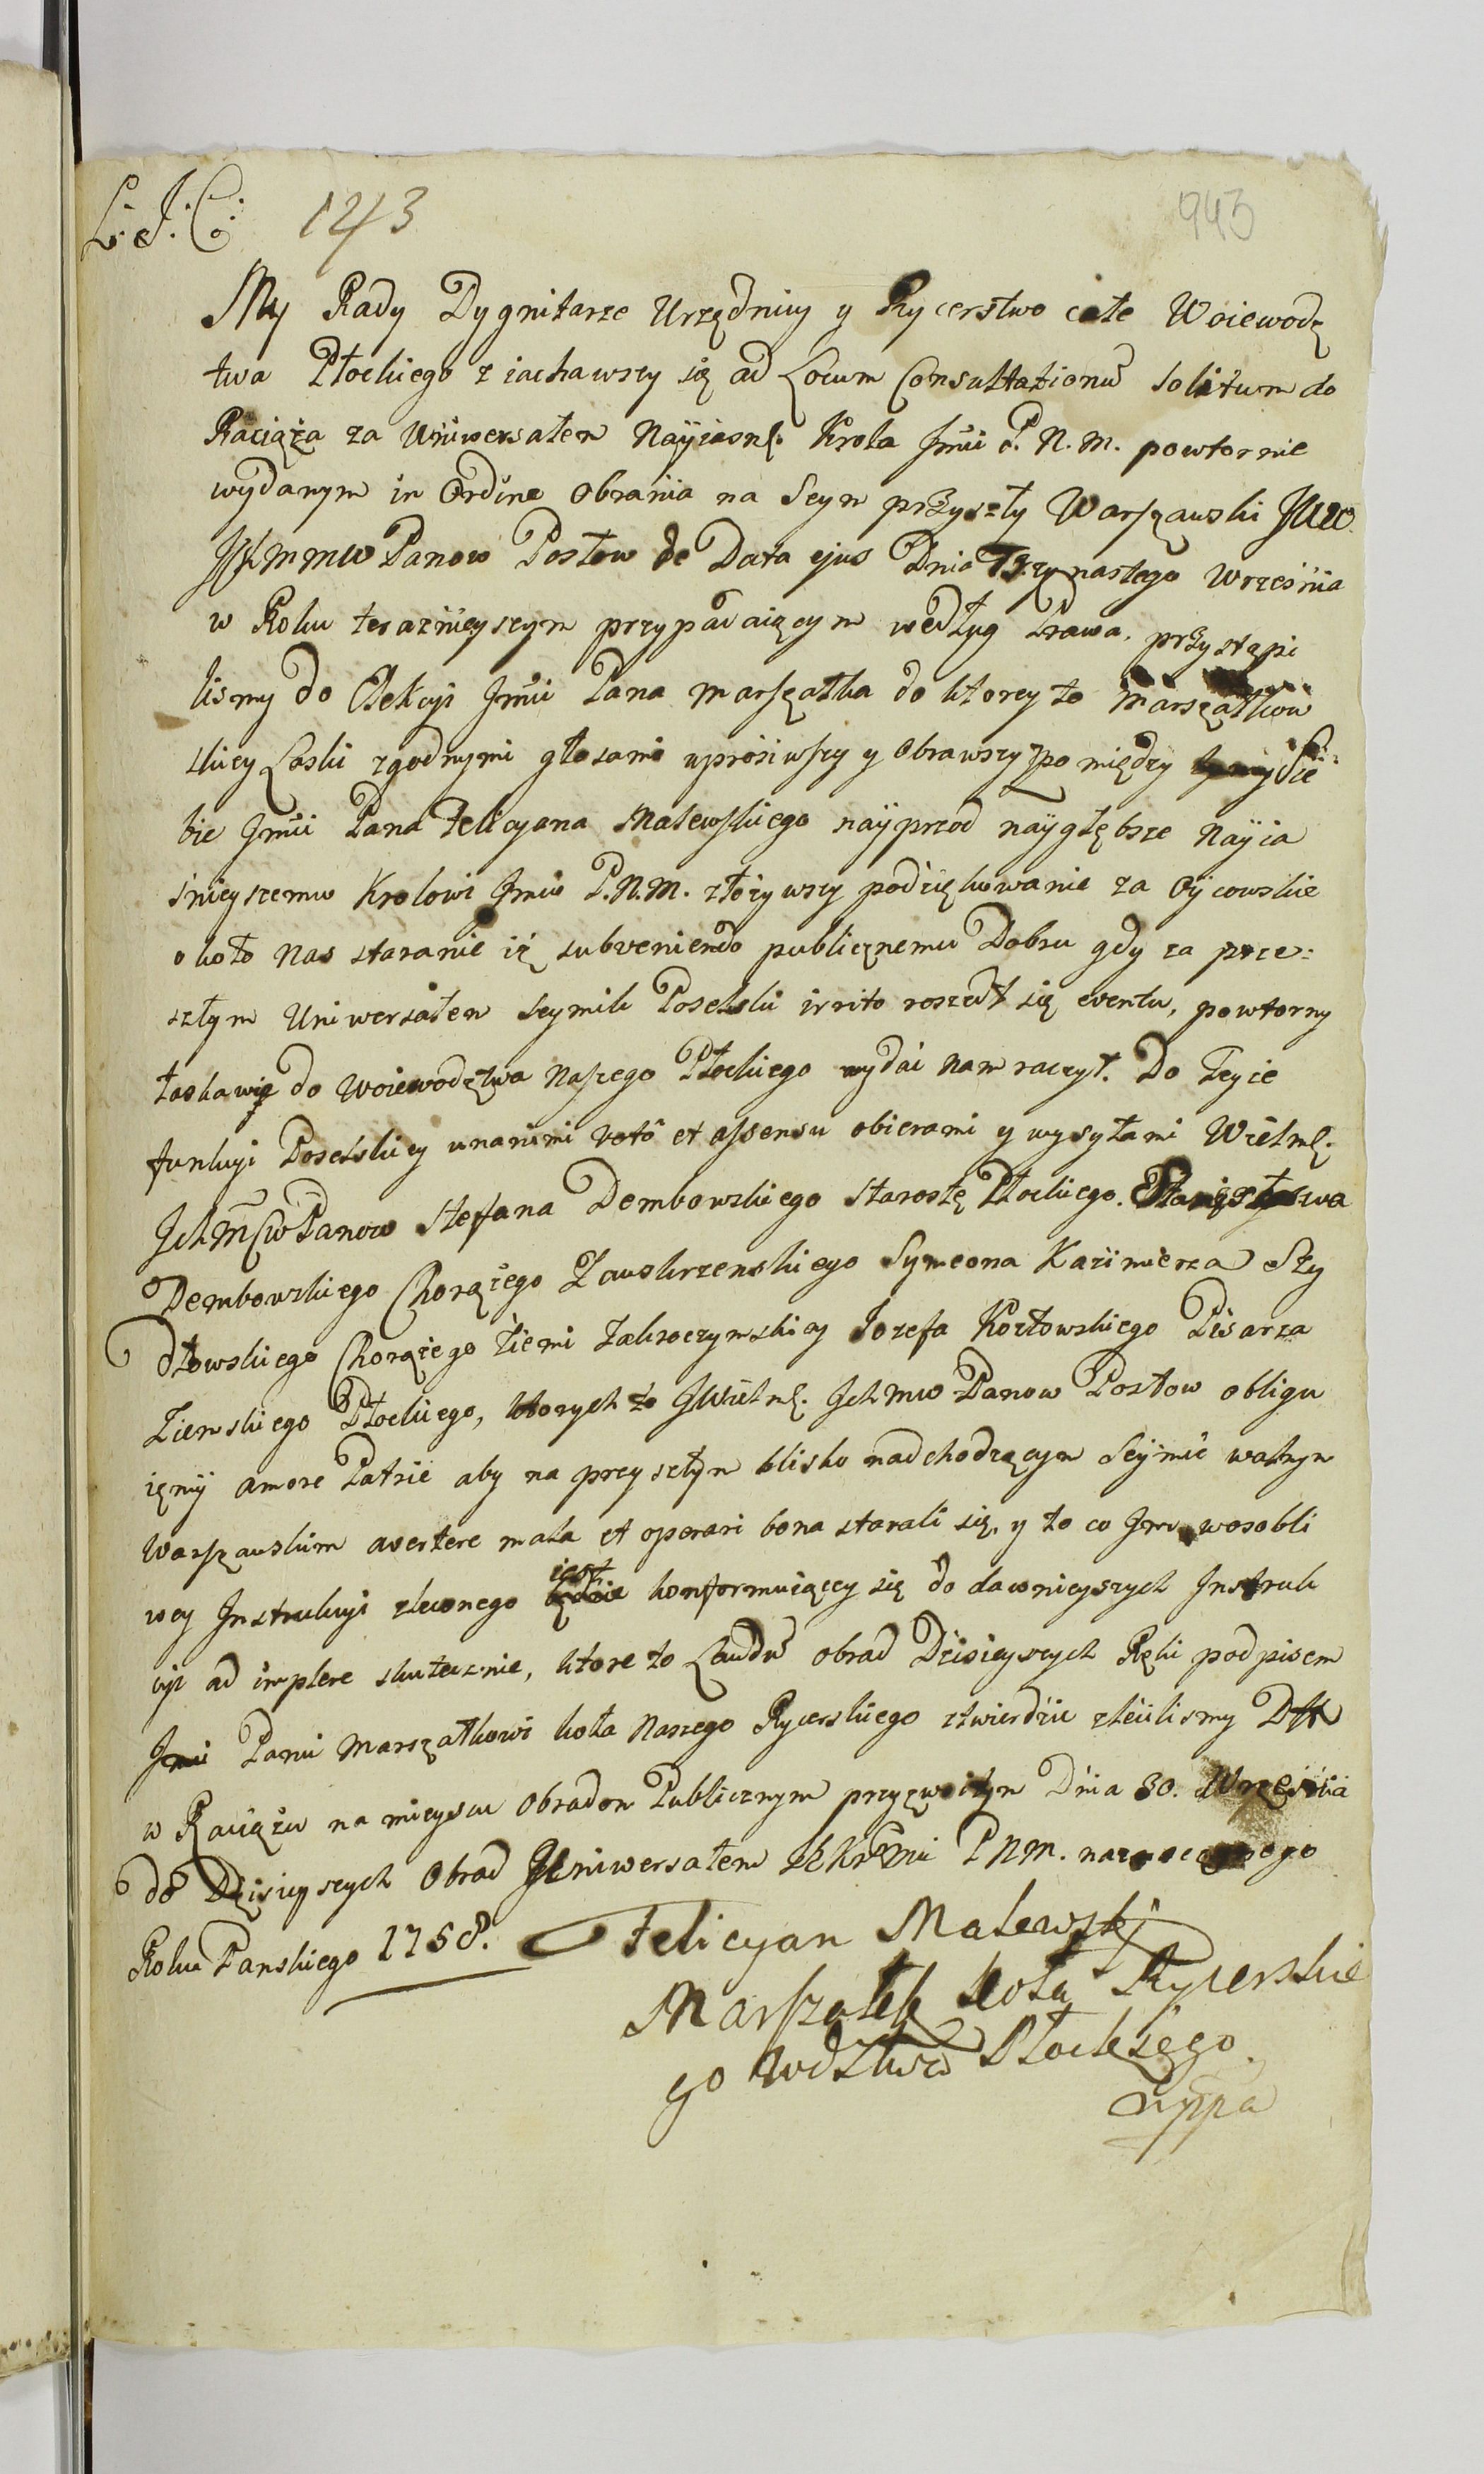 L. J. C. 143 943
My Rady Dygnitarze Urzędnicy y Rycerstwo całe Woiewodz
twa Płockiego ziachawszy się ad Locum Consultationū solitum do
Raciąża za Uniwersałem Nayiasnę. Krola Jmći P. N. M. powtornie
wydanym in Ordine Obrania na Seym przyszły Warszawski JWW
Ichmmw Panow Posłow de Data ejus Dnia Trzynastego Wrzesnia
w Roku teraznieyszym przypadaiącym według Prawa, przystąpi
lismy do Elekcyi Jmći Pana marszałka do ktorey to Marszałkow
skiey Laski zgodnymi głosami uprosiwszy y Obrawszy z pomiędzy Sie
bie Jmći Pana Felicyana Malewskiego nayprzod naygłębsze Nayia
snieyszemu Krolowi Jmći P. N. M. złożywszy podziękowanie za Oycowskie
około Nas staranie iż subveniendo publicznemu Dobru gdy za prze=
szłym Uniwersałem Seymik Poselski irrito roszedł się eventu, powtorny
łaskawie do Woiewodztwa Naszego Płockiego wydać nam raczył. Do Teyże
funkcyi Poselskiey unanimi voto et assensu obierami y wysyłami Wielmę.
Ichmćw Panow Stefana Dembowskiego Starostę Płockiego. Stanisława
Dembowskiego Chorążego Zawskrzenskiego Symeona Kazimierza Szy
dłowskiego Chorążego Ziemi Zakroczymskiey Jozefa Kozłowskiego Pisarza
Ziemskiego Płockiego, ktorych to JWielmę. Ichmw Panow Posłow obligu
ięmy amore Patrie aby na przyszłym blisko nadchodzącym Seymie walnym
Warszawskim avertere mala et operari bona starali się, y to co Jm wosobli
wey Instrukcyi zleconego iest konformuiąccy się do dawnieyszych Instruk
cyi ad implere skutecznie, ktore to Laudū obrad Dzisieyszych Ręki podpisem
Jmći Panu Marszałkowi koła Naszego Rycerskiego stwierdzic zlecilismy Dtt
w Raciążu na mieyscu Obradom Publicznym przyzwoitym Dnia 30. Wrzesnia
do Dzisieyszych Obrad Uniwersałem P N M. naznaczonego
Roku Panskiego 1758. Felicyan Malewski
Marszałek koła Rycerskie
go Wdztwa Płockiego
mppa